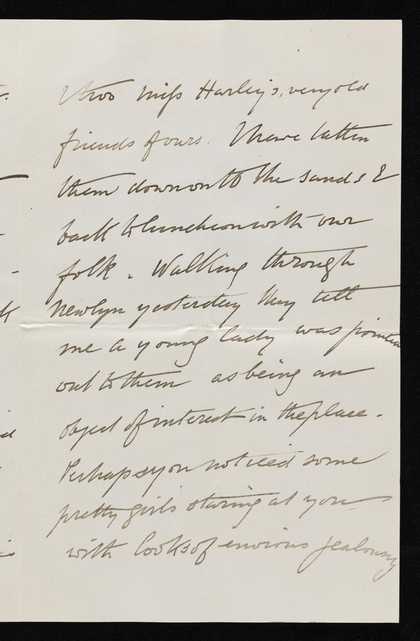 & two Miss Harleys, very old
friends of ours. I have taken
them down on to the sands &
back to luncheon with our
folk. Walking through
Newlyn yesterday they tell
me a young lady was pointed
out to them as being an
object of interest in the place.
Perhaps you noticed some
pretty girls staring at you
with looks of envious jealousy